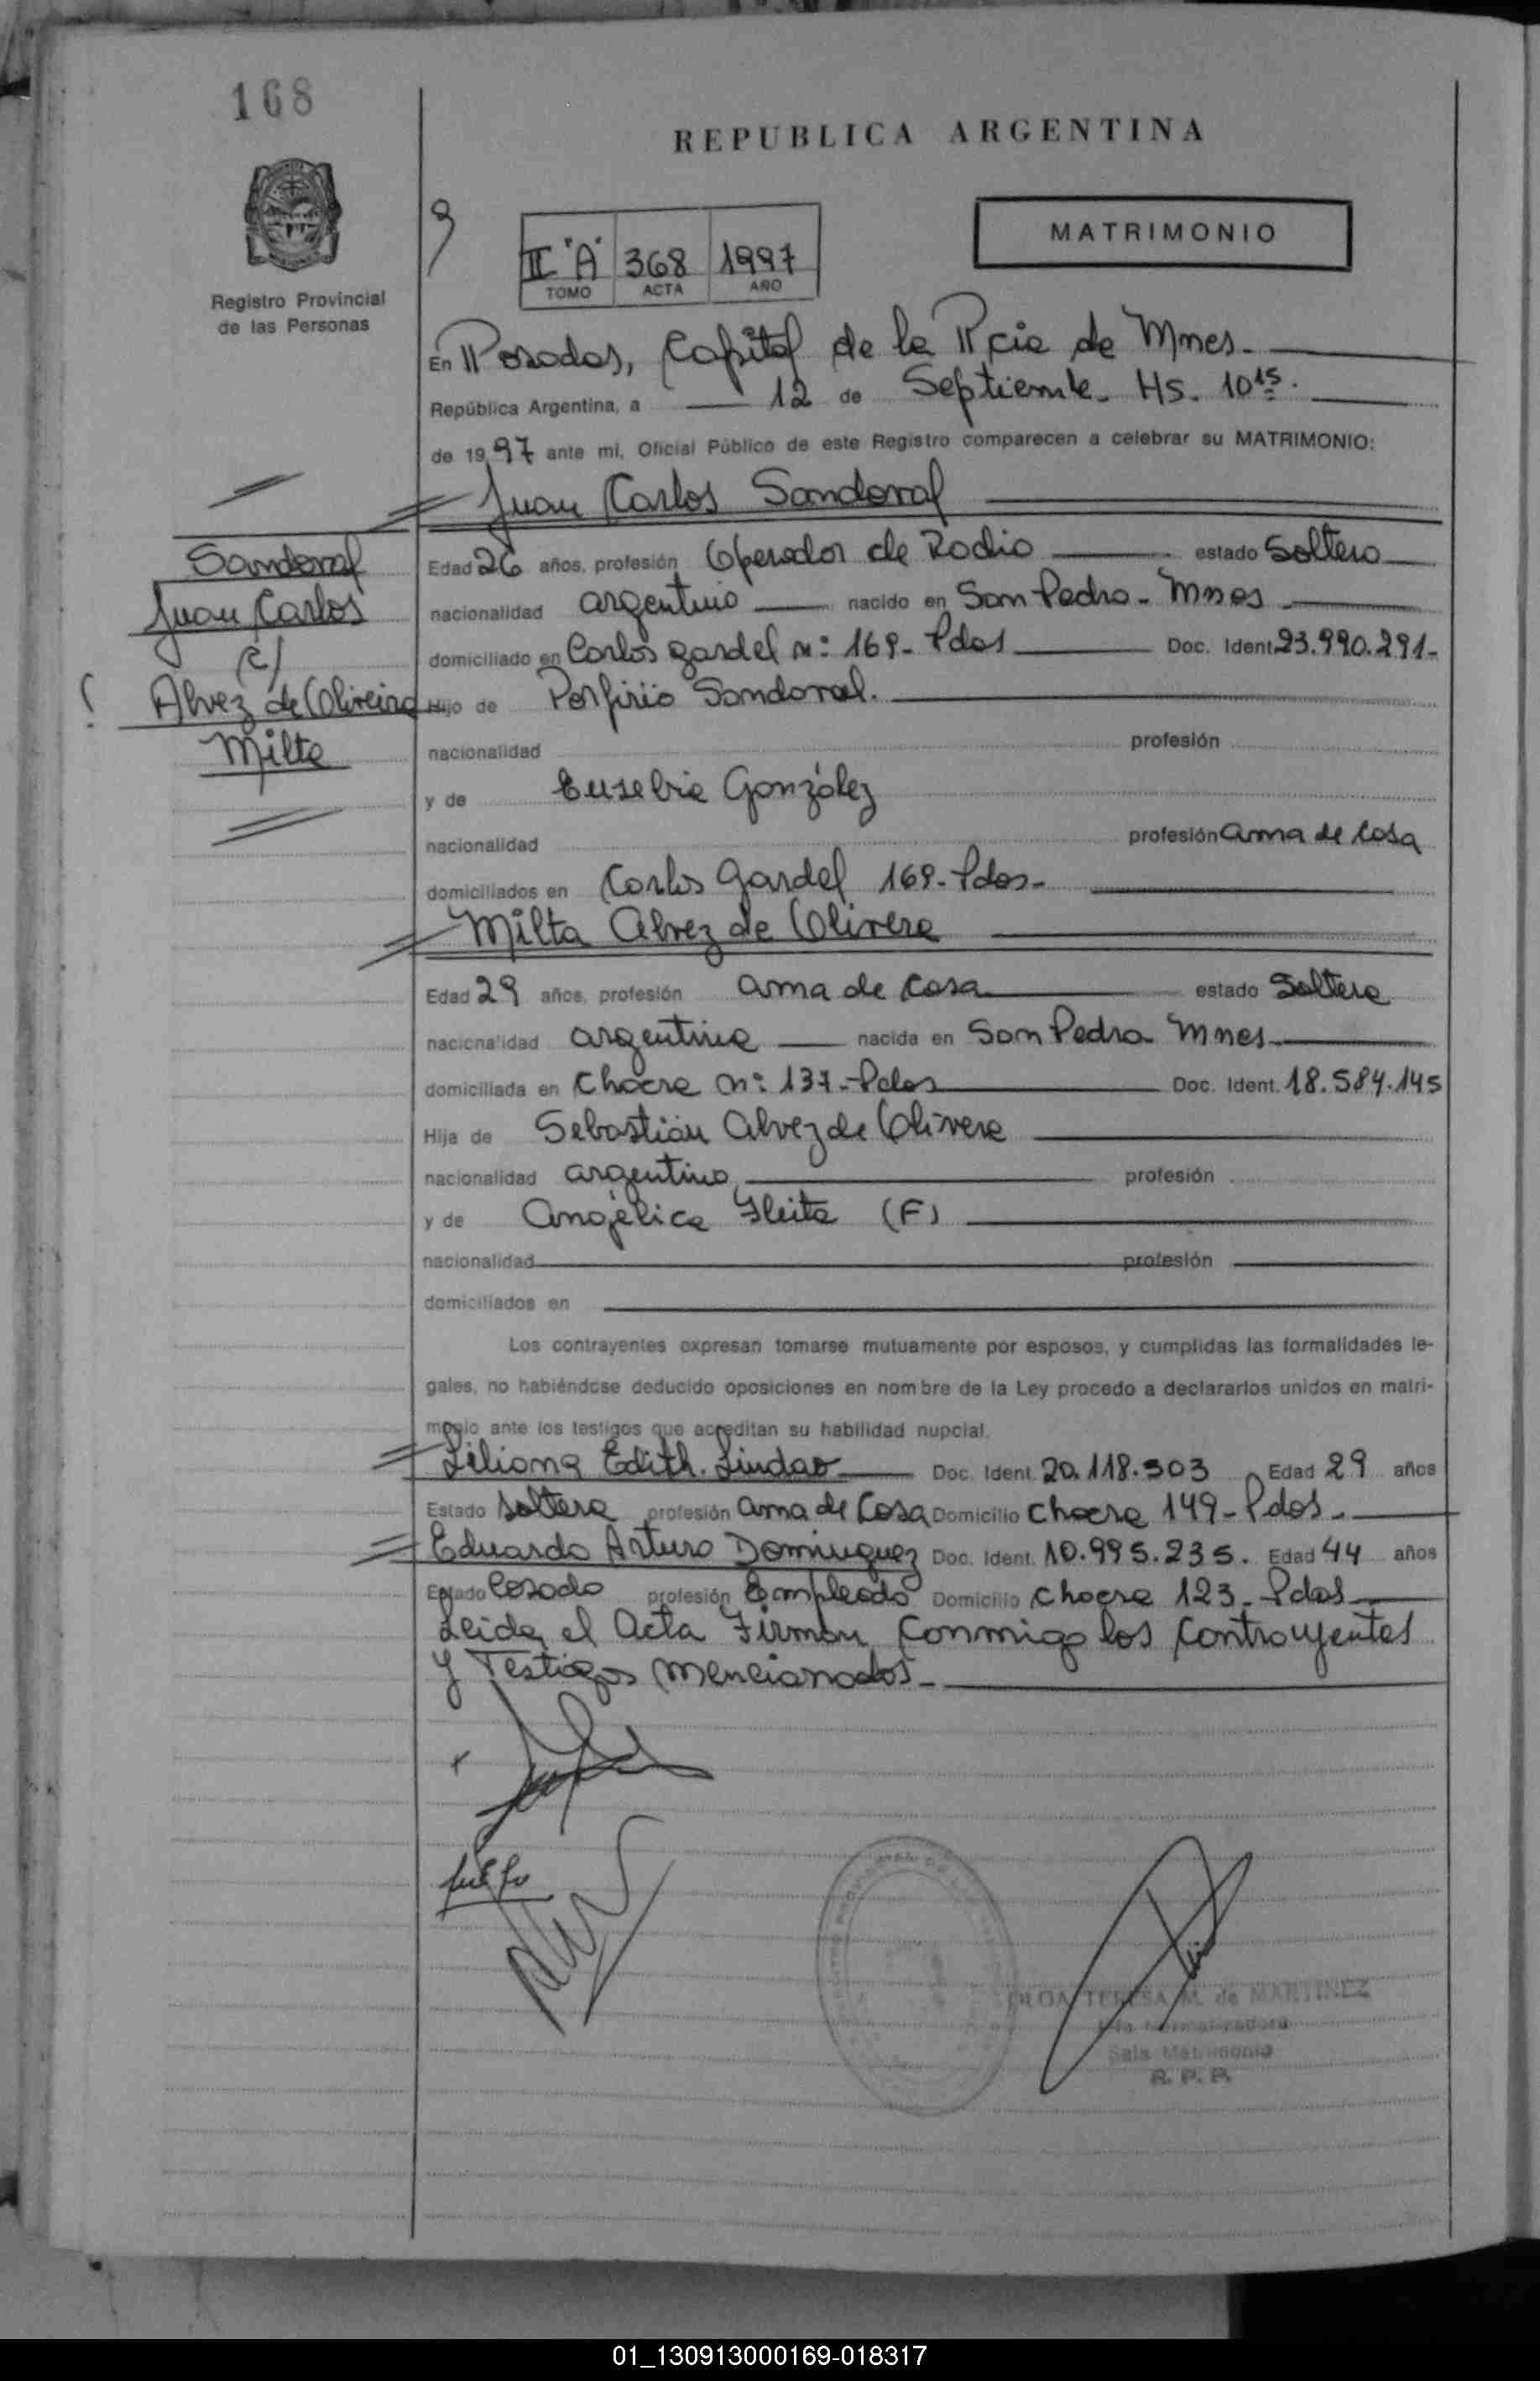 168
REPUBLICA ARGENTINA
MATRIMONIO
II "A" 368 1997
TOMO ACTA AÑO
Registro Provincial
de las Personas
En Posadas, Capital de la Pcia de Mnes.
República Argentina, a 12 de Septiembre. Hs. 10 15.
de 1997 ante mi, Oficial Público de este Registro comparecen a celebrar su MATRIMONIO:
Juan Carlos Sandoval
Sandoval
Juan Carlos
c/
Alvez de Oliveira
Milta
Edad 26 años, profesión Operador de Radio estado Soltero
nacionalidad argentino nacido en San Pedro - Mnes
domiciliado en Carlos Gardel nº: 169 - Pdas Doc. Ident 23.990.291-
Hijo de Porfirio Sandoval.
nacionalidad profesión
y de Eusebia González
nacionalidad profesión ama de casa
domiciliados en Carlos Gardel 169 - Pdas -
Milta Alvez de Olivera
Edad 29 años, profesión ama de casa estado Soltera
nacionalidad argentina nacida en San Pedro - Mnes -
domiciliada en Chacra nº: 137 - Pdas Doc. Ident. 18.584.145
Hija de Sebastián Alvez de Olivera
nacionalidad argentino profesión
y de Angélica Fleita (F)
nacionalidad profesión
domiciliados en
Los contrayentes expresan tomarse mutuamente por esposos, y cumplidas las formalidades le-
gales, no habiéndose deducido oposiciones en nombre de la Ley procedo a declararlos unidos en matri-
monio ante los testigos que acreditan su habilidad nupcial.
Liliana Edith Lindao Doc. Ident. 20.118.303 Edad 29 años
Estado soltera profesión ama de casa Domicilio chacra 149 - Pdas -
Eduardo Arturo Dominguez Doc. Ident. 10.995.235. Edad 44 años
Estado Casado profesión Empleado Domicilio chacra 123 - Pdas
Leida el Acta Firman conmigo los contrayentes
y Testigos mencionados -
TERESA M. de MARTINEZ
Sala Matrimonio
R. P. P.
01_130913000169-018317